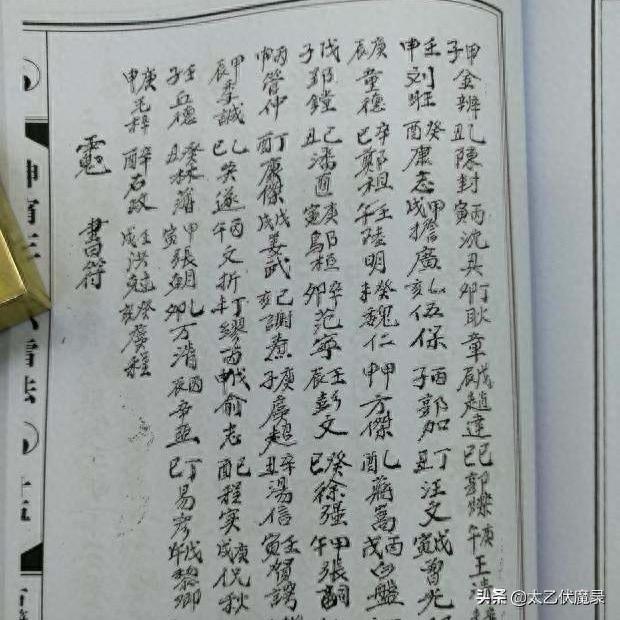 甲子金辨乙丑陳封丙寅沈兴丁卯耿章戊辰趙達己巳郭燦庚午王清
壬申刘旺癸酉康志甲戌擔廣乙亥伍保丙子郭加丁丑汪文戊寅曾光
庚辰童德辛巳鄭祖壬午陸明癸未魏仁甲申方傑乙酉蔣嵩丙戌白盤
戊子郢鏜己丑潘庚寅鄔桓辛卯范寧壬辰彭文癸巳徐强甲午張嗣
丙申管仲丁酉康傑戊戌姜武己亥謝燾庚子虞超辛丑湯信壬寅賀諤
甲辰李誠乙巳吴遂丙午文折丁未繆丙戊申俞志己酉程实庚戌倪秋
壬子丘德癸丑林簿甲寅張朝乙卯万清丙辰辛亚丁巳易彦戊午黎卿
庚申毛梓辛酉石政壬戌洪克癸亥虞程
書符
十五
头条 @太乙伏魔录